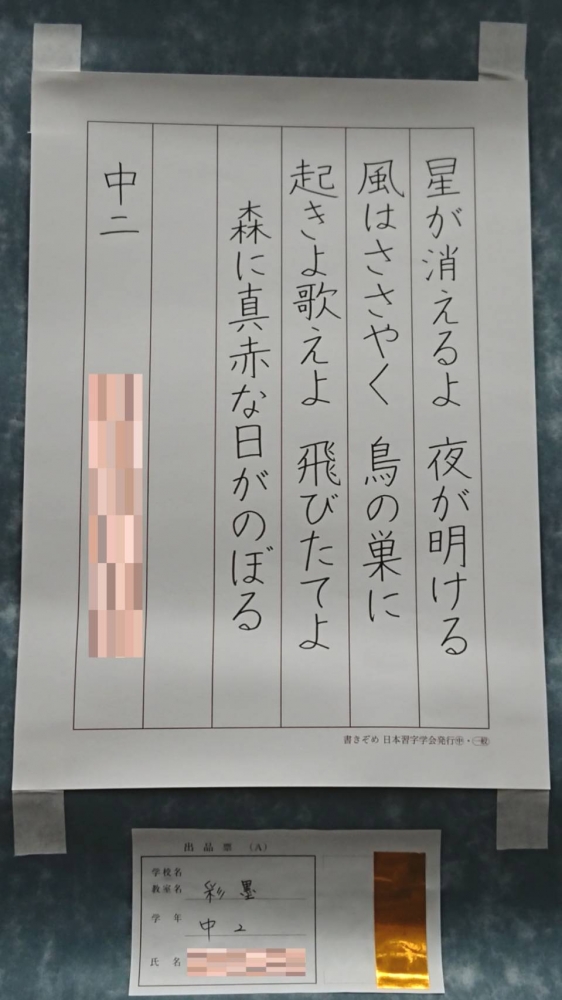 星が消えるよ　夜が明ける
風はささやく　鳥の巣に
起きよ歌えよ　飛びたてよ
森に真赤な日がのぼる
中二
書きぞめ 日本習字学会発行㊥・㊀般
出品票（A）
学校名
教室名 彩墨
学年 中2
氏名